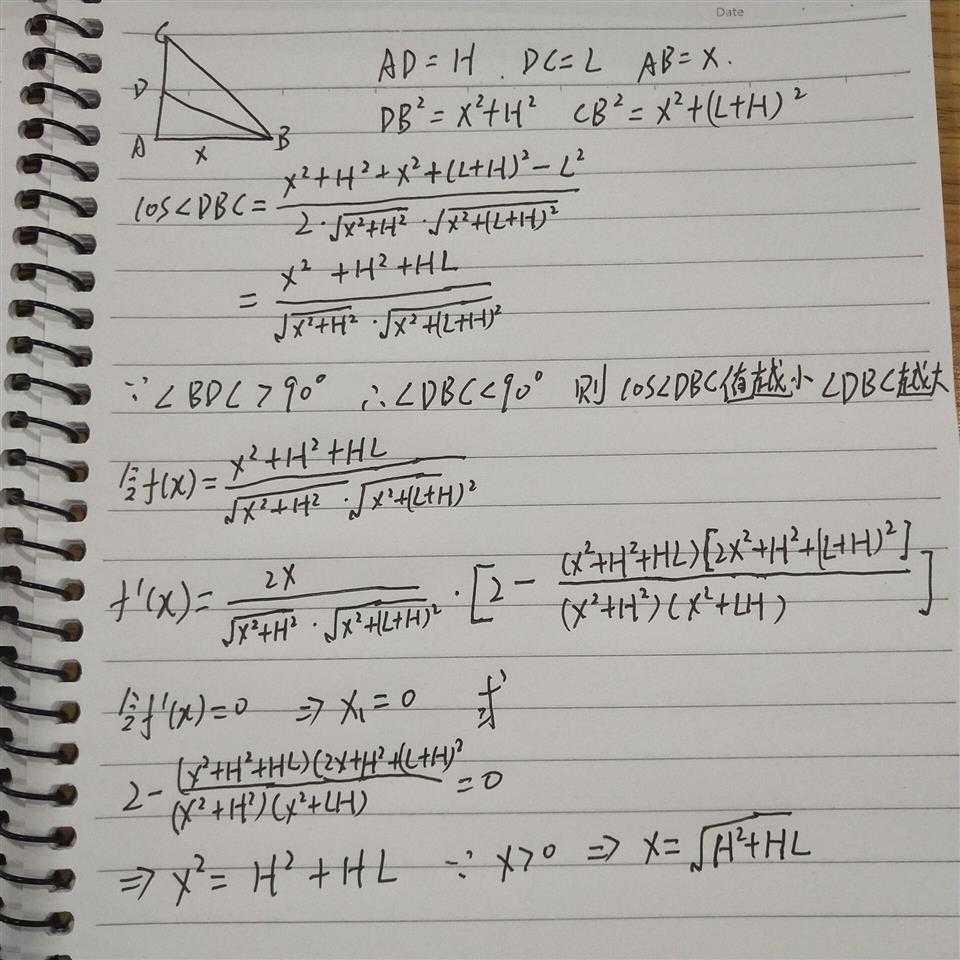 Date
C
D
A
x
B
AD = H . DC = L AB = X.
DB² = X² + H² CB² = X² + (L+H)²
cos∠DBC = \frac{X²+H²+X²+(L+H)²-L²}{2·√(X²+H²)·√(X²+(L+H)²)}
= \frac{X²+H²+HL}{√(X²+H²)·√(X²+(L+H)²)}
∵∠BDC > 90° ∴∠DBC < 90° 则 cos∠DBC值越小 ∠DBC越大
令f(x) = \frac{X²+H²+HL}{√(X²+H²)·√(X²+(L+H)²)}
f'(x) = \frac{2X}{√(X²+H²)·√(X²+(L+H)²)} · [2 - \frac{(X²+H²+HL)[2X²+H²+(L+H)²]}{(X²+H²)(X²+LH)}]
令f'(x) = 0 ⇒ X₁ = 0 或
2 - \frac{(X²+H²+HL)(2X+H²+(L+H)²}{(X²+H²)(X²+LH)} = 0
⇒ X² = H² + HL ∵ X > 0 ⇒ X = √(H²+HL)